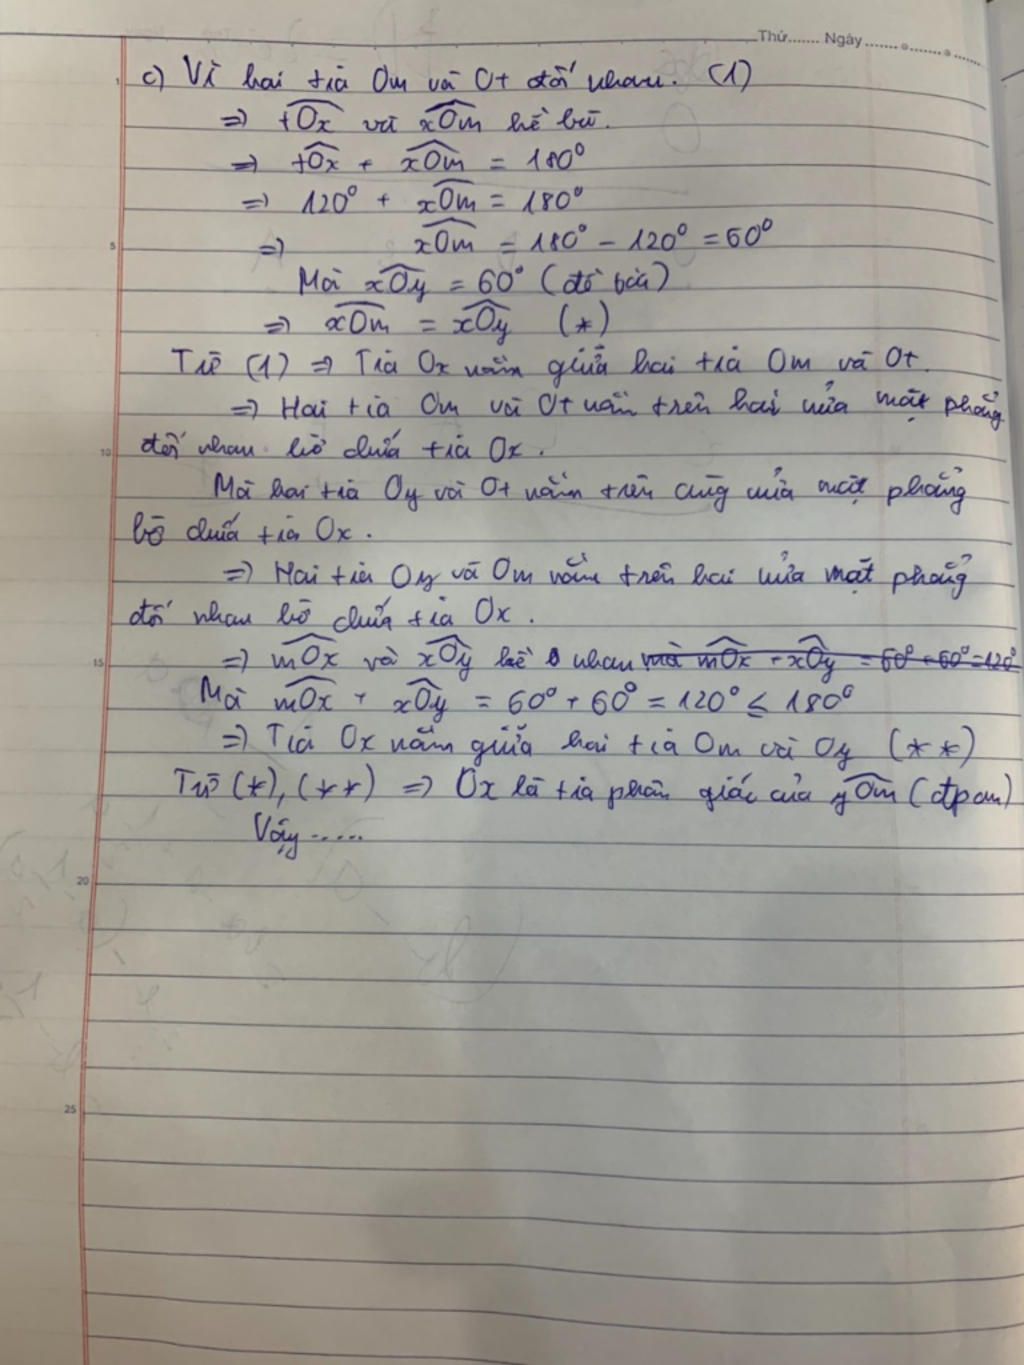 Thứ....... Ngày.......
c) Vì hai tia Om và Ot đối nhau. (1)
=> tOx và xOm kề bù.
=> tOx + xOm = 180°
=> 120° + xOm = 180°
5 => xOm = 180° - 120° = 60°
Mà xOy = 60° (đề bài)
=> xOm = xOy (*)
Từ (1) => Tia Ox nằm giữa hai tia Om và Ot.
=> Hai tia Om và Ot nằm trên hai nửa mặt phẳng
10 đối nhau bờ chứa tia Ox.
Mà hai tia Oy và Ot nằm trên cùng nửa mặt phẳng
bờ chứa tia Ox.
=> Hai tia Oy và Om nằm trên hai nửa mặt phẳng
đối nhau bờ chứa tia Ox.
15 => mOx và xOy kề nhau mà mOx + xOy = 60° + 60° = 120°
Mà mOx + xOy = 60° + 60° = 120° ≤ 180°
=> Tia Ox nằm giữa hai tia Om và Oy (**)
Từ (*), (**) => Ox là tia phân giác của yOm (đpcm)
Vậy .....
20
25